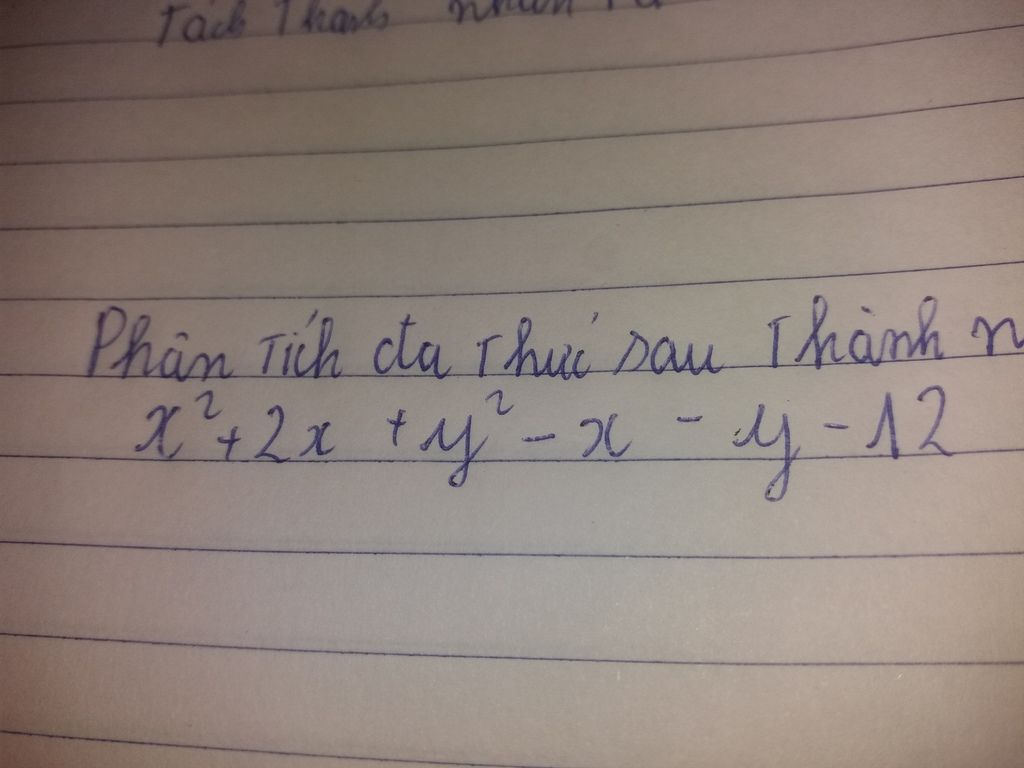 Tách Thành nhân
Phân Tích đa Thức sau Thành n
x² + 2x + y² - x - y - 12